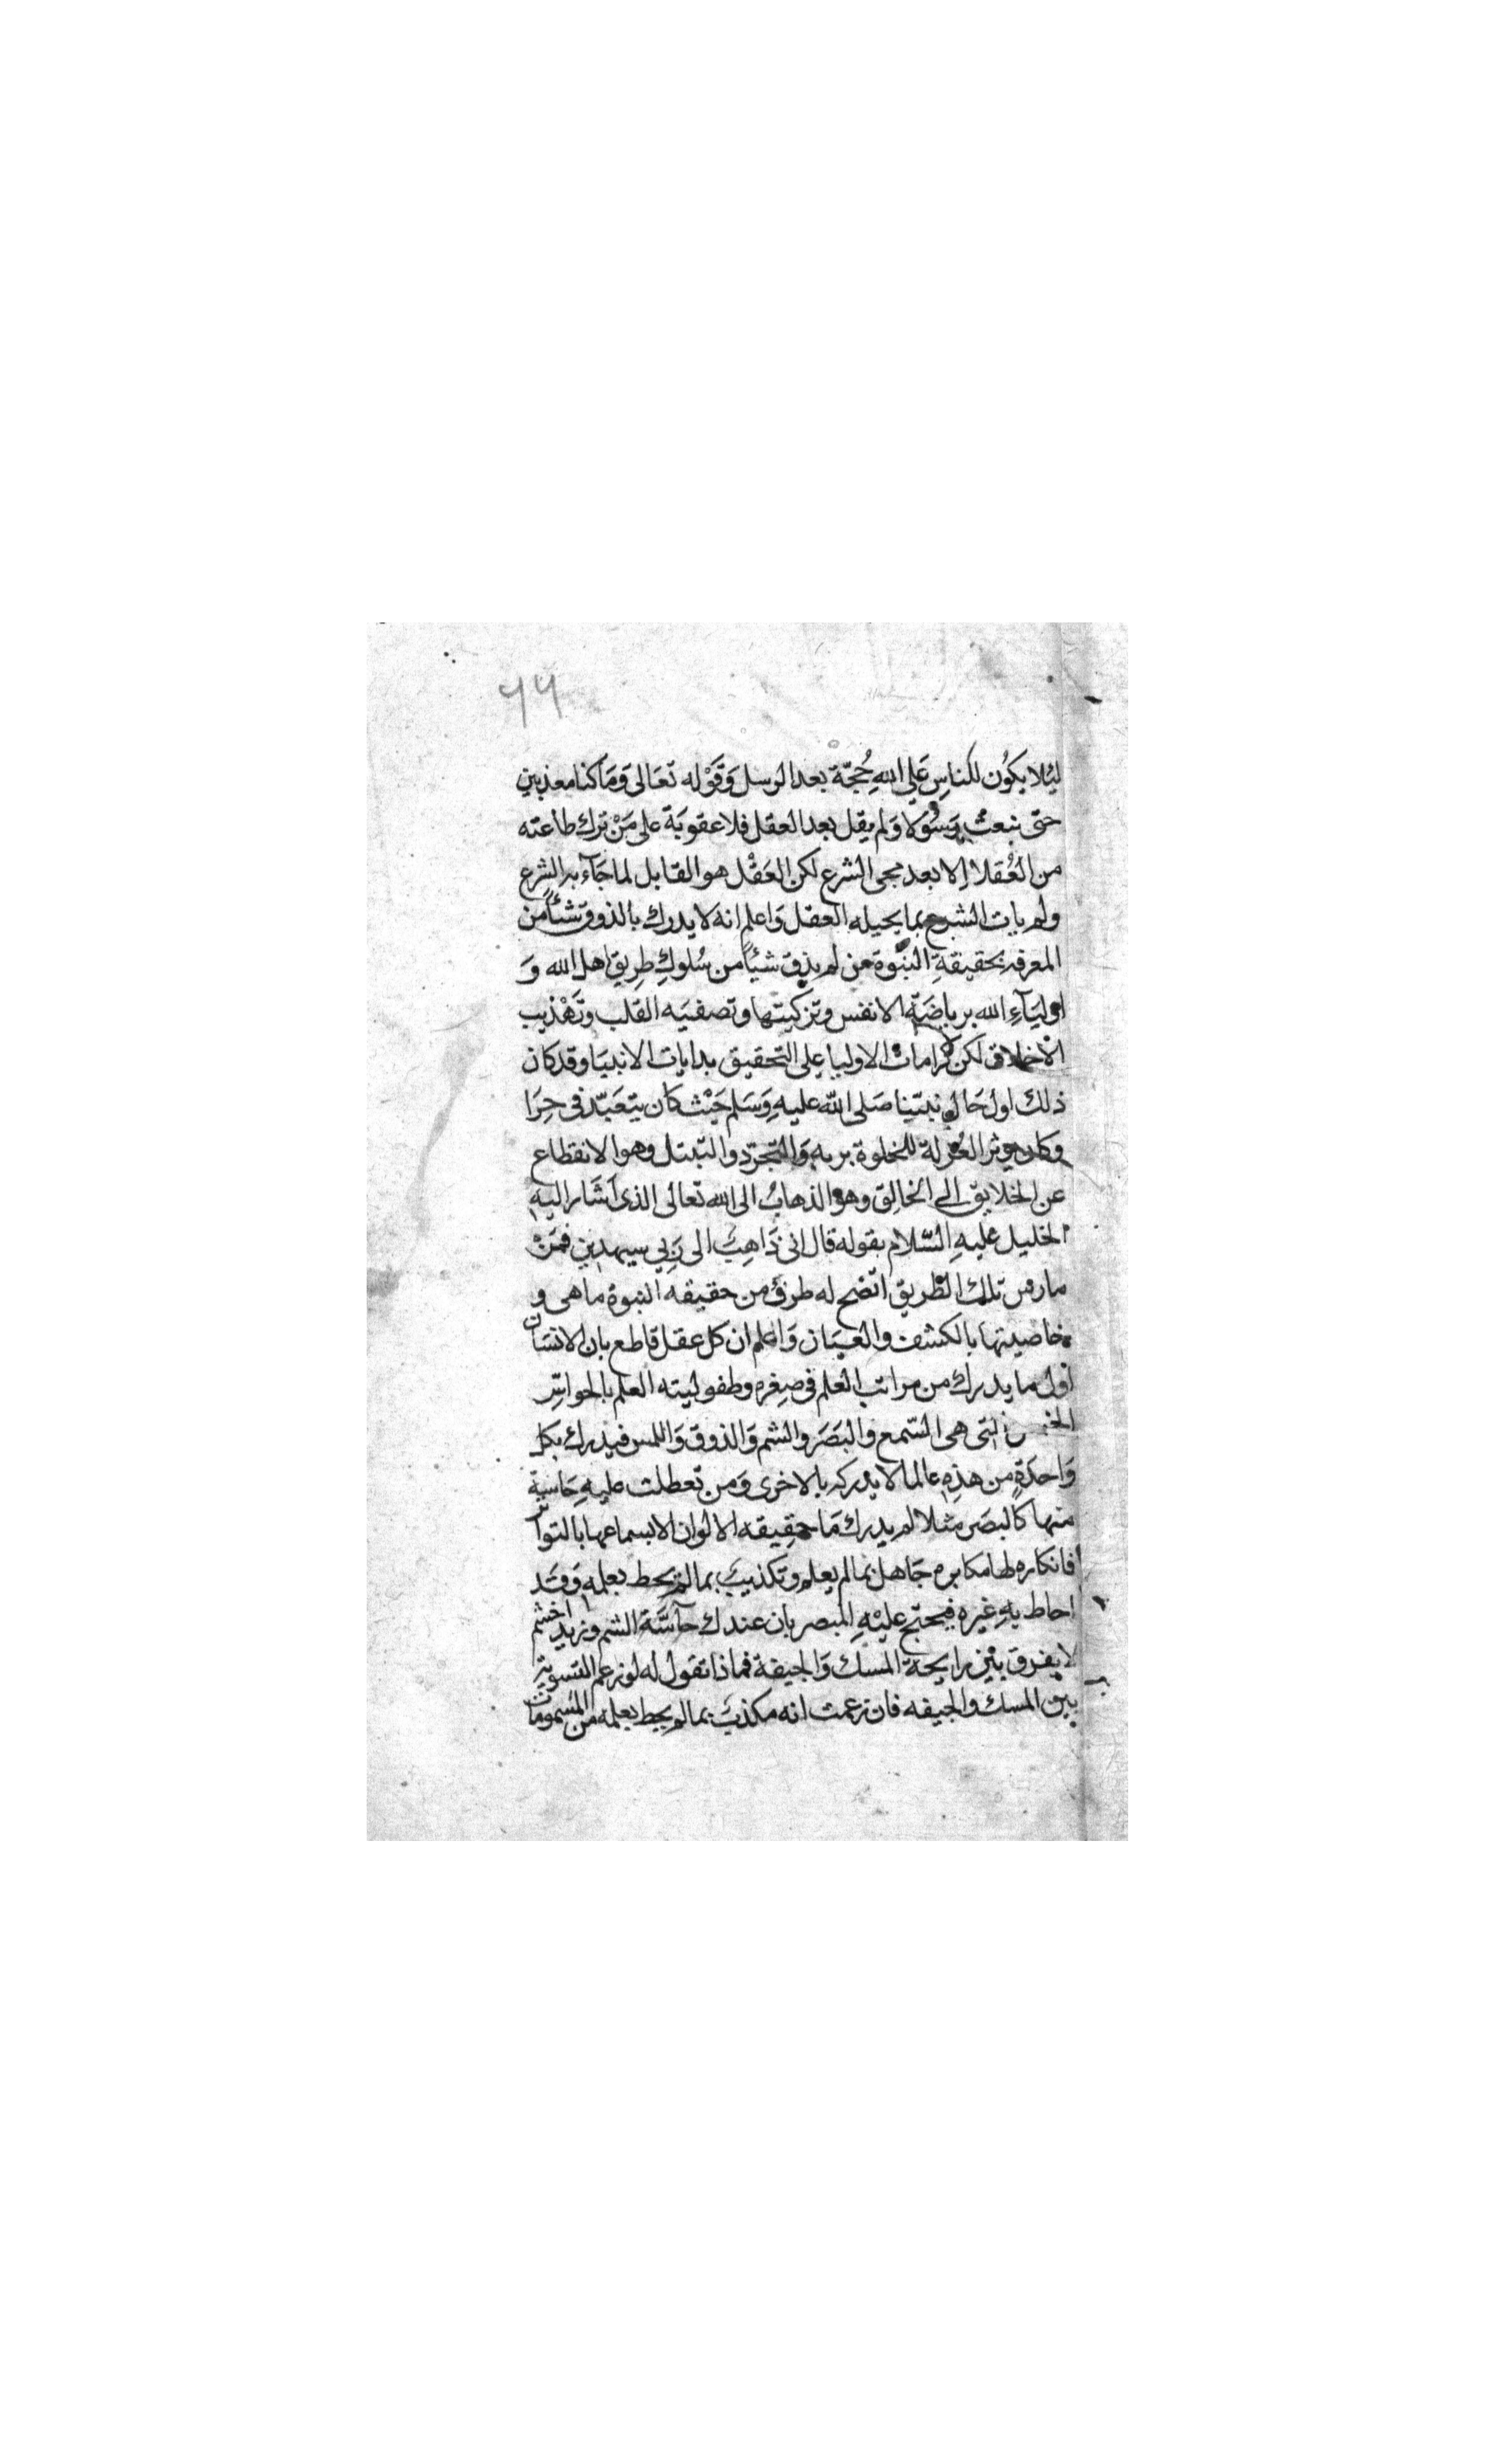 ٦٦
لئلا يكُون للناسِ عَلي اللهِ حُجّة بعد الرسل وَقَوْله تعَالى وَمَا كنا معذبين
حتى نبعث رَسُولا وَلم يقل بعد العقل فلا عقوبَة على مَنْ ترك طاعته
من العُقلا إلا بعد مجى الشرع لكن العَقْل هو القابل لما جَآء به الشرع
ولم يات الشرع بما يحيله العقل وَاعلم انه لا يدرك بالذوق شئاً من
المعرفه بحقيقةِ النبُوة من لم يذق شيئاً من سُلوكِ طِريق اهل الله وَ
اوليَآءِ الله برياضَةِ الانفس وتزكيتها وتصفيَه القلب وتَهْذيب
الاخلاق لكن كرامات الاوليا على التحقيق بدايات الانبيَا وقد كان
ذلك اول حَال نبيّنا صَلى الله عليهِ وَسَلم حَيْث كان يتعَبّد فى حِرَا
وكان يوثر العُزلة للخلوة بربه وَالتجرّد والتبتل وهو الانقطاع
عن الخلايق الى الخالِق وهو الذهابُ الى الله تعالى الذى اَشَار اليه
الخليل عليهِ السّلام بقوله قال انى ذَاهِبٌ الى رَبي سيهدين فمَنْ
مارس تلك الطريق اتضح له طرفٌ من حقيقه النبوة ما هى و
خاصيتها بالكشف والعيَان وَاعلم ان كل عقل قاطع بان الانسَان
اول ما يدرك من مراتب العلم فى صِغره وطفوليته العلم بالحواسِّ
الخمس التى هى السّمع والبَصَر والشم وَالذوق وَاللمس فيدرك بكل
وَاحدةٍ من هذِه عالما لا يدركه بالاخرى وَمن تعطلت عليهِ حَاسة
منها كالبصَر مثلا لم يدرك مَا حقيقه الالوان الا بسماعها بالتواتر
فانكاره لها مكابره جَاهل بما لم يعلم وتكذيبٌ بما لم يحط بعلمه وَقَد
احاط بهِ غيره فيحتج عليْهِ المبصر بان عندك حآسَّة الشم وزيد اخشم
لا يفرق بيْن رايحة المسك وَالجيفة فماذا تقول له لو زعم التسوية
بين المسك والجيفه فان زعمت انه مكذبٌ بما لم يحط بعلمه من المشمومات